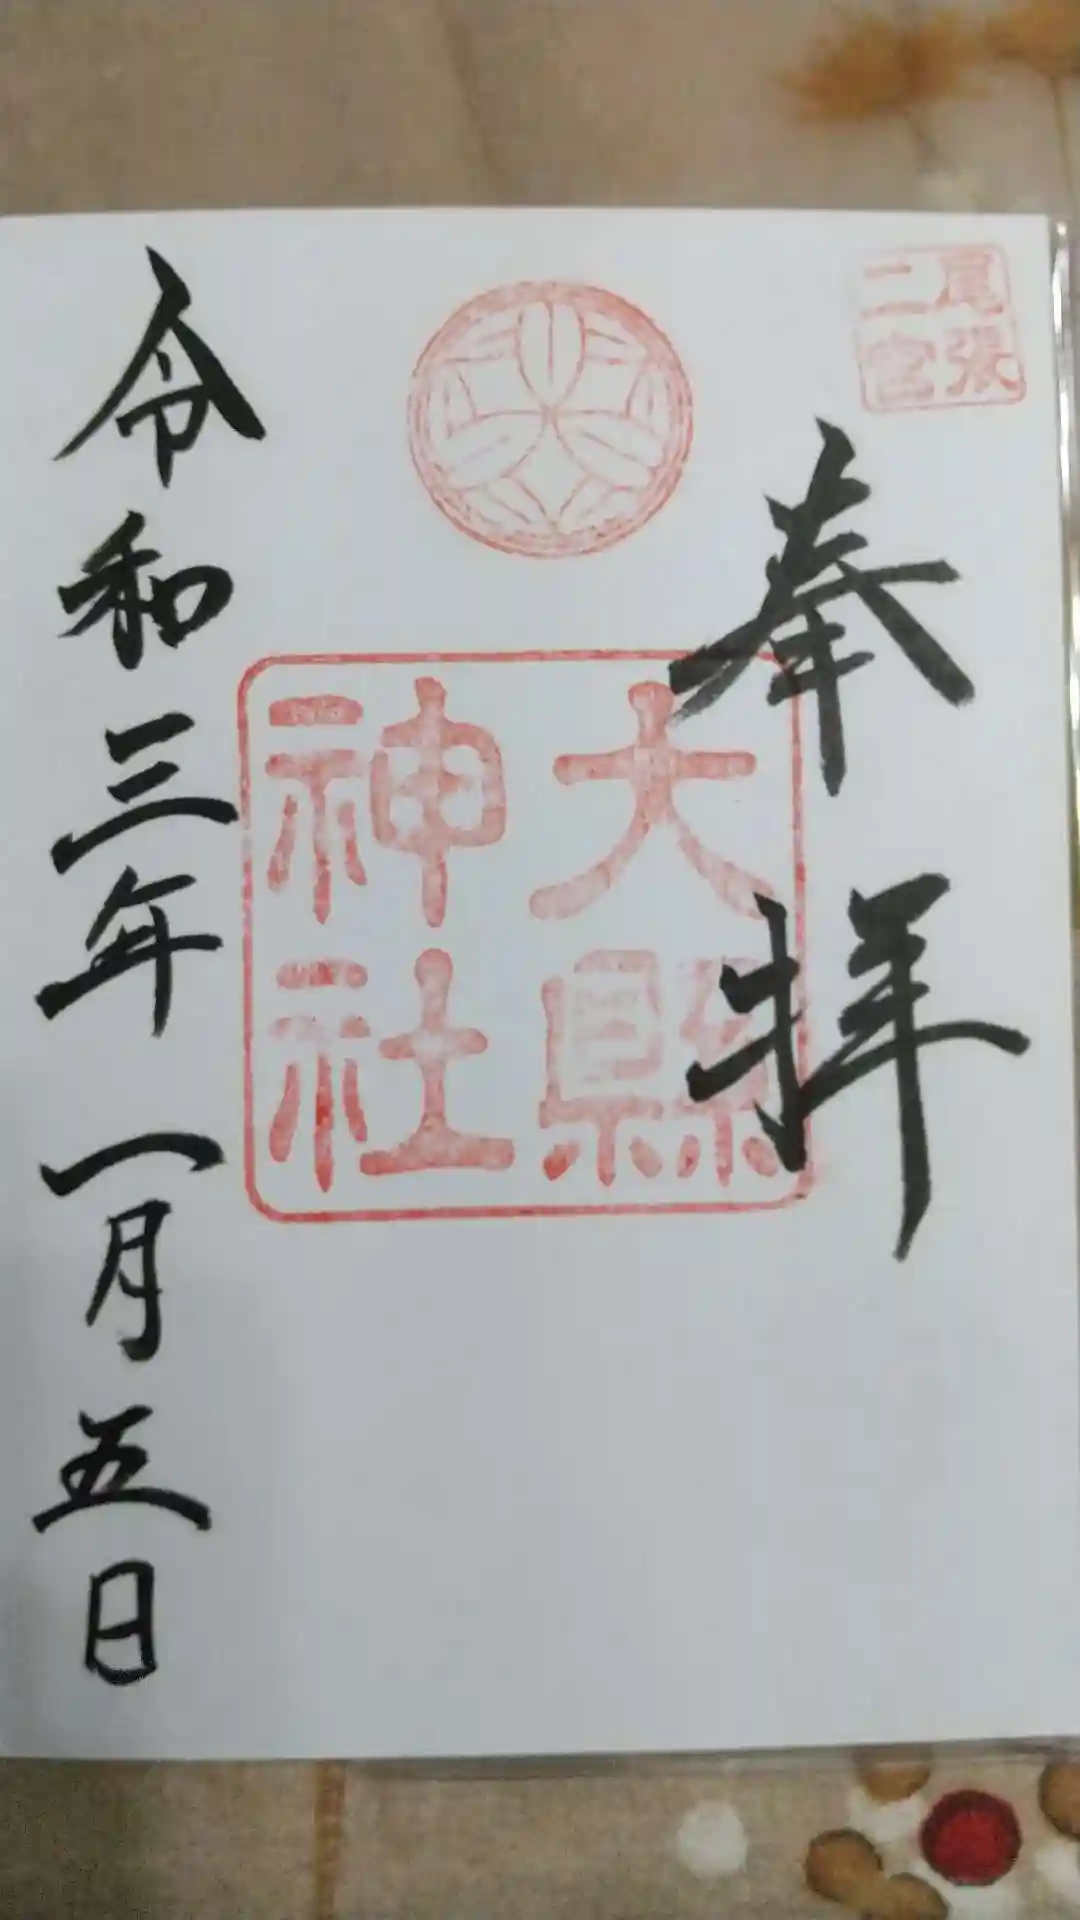 尾張
二宮
奉拝
大縣
神社
令和三年一月五日